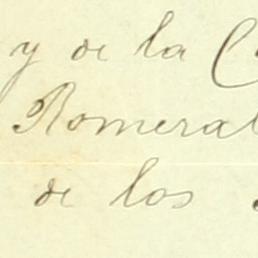 y de la C
Romeral
de los